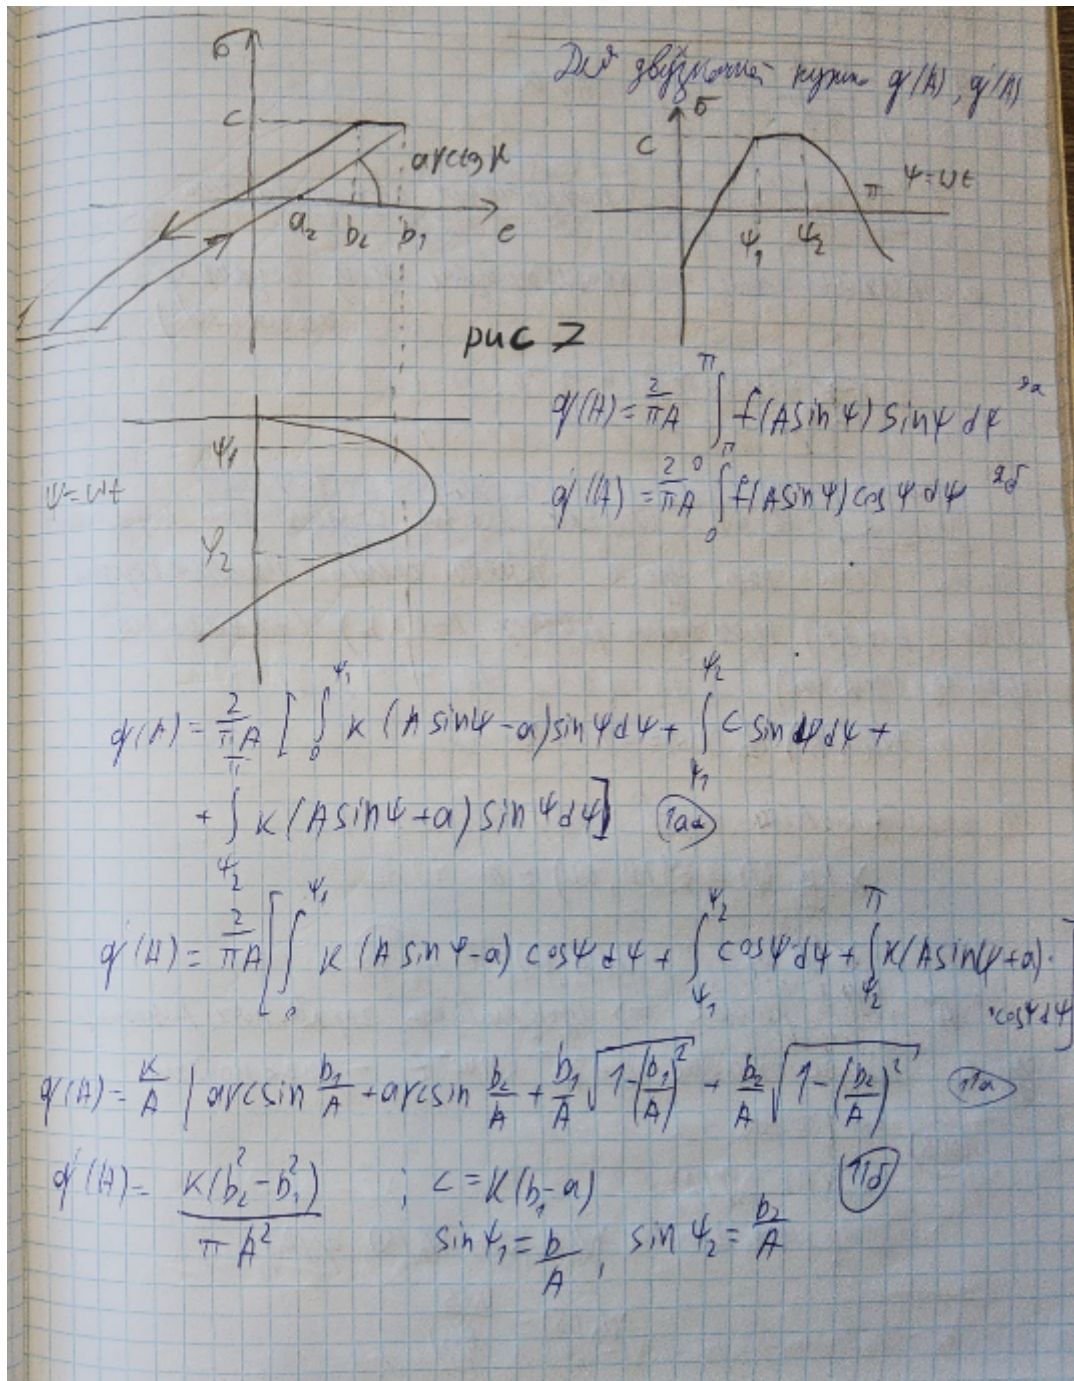 Для двузначной нужно q(A), q'(A)
σ
c
arctg k
a₂ b₂ b₁ e
1
σ
c
π ψ=ωt
ψ₁ ψ₂
рис 7
ψ₁
ψ=ωt
ψ₂
q(A) = 2/(πA) ∫₀^π f(A sin ψ) sin ψ dψ 9а
q'(A) = 2/(πA) ∫₀^π f(A sin ψ) cos ψ dψ 9б
q(A) = 2/(πA) [ ∫₀^ψ₁ k (A sin ψ - a) sin ψ dψ + ∫_ψ₁^ψ₂ c sin ψ dψ +
+ ∫_ψ₂^π k (A sin ψ + a) sin ψ dψ ]
q'(A) = 2/(πA) [ ∫₀^ψ₁ k (A sin ψ - a) cos ψ dψ + ∫_ψ₁^ψ₂ cos ψ dψ + ∫_ψ₂^π k (A sin ψ + a) ·
· cos ψ dψ ]
q(A) = k/A | arcsin b₁/A + arcsin b₂/A + b₁/A √(1-(b₁/A)²) + b₂/A √(1-(b₂/A)²) 11а
q'(A) - k(b₂² - b₁²)/(πA²) ; c = k(b₁ - a) 11б
sin ψ₁ = b/A , sin ψ₂ = b₂/A